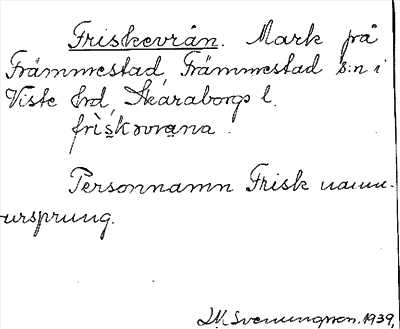 Friskevrån. Mark på
Främmestad, Främmestad s:n i
Viste hrd, Skaraborgs l.
friskəvrana.
Personnamn Frisk
ursprung.
Svenungsson. 1939.